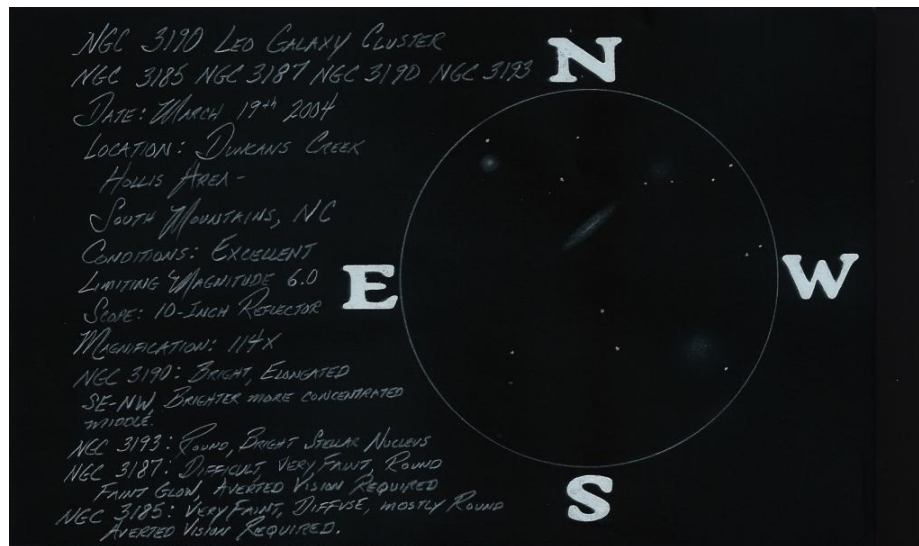 NGC 3190 LEO GALAXY CLUSTER
NGC 3185 NGC 3187 NGC 3190 NGC 3193
DATE: MARCH 19th 2004
LOCATION: DUNCANS CREEK
HOLLIS AREA -
SOUTH MOUNTAINS, NC
CONDITIONS: EXCELLENT
LIMITING MAGNITUDE 6.0
SCOPE: 10-INCH REFLECTOR
MAGNIFICATION: 114X
NGC 3190: BRIGHT, ELONGATED
SE-NW, BRIGHTER MORE CONCENTRATED
MIDDLE.
NGC 3193: ROUND, BRIGHT STELLAR NUCLEUS
NGC 3187: DIFFICULT, VERY FAINT, ROUND
FAINT GLOW, AVERTED VISION REQUIRED
NGC 3185: VERY FAINT, DIFFUSE, MOSTLY ROUND
AVERTED VISION REQUIRED.
N
E
W
S